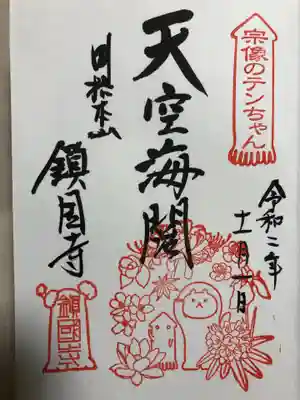 宗像のテンちゃん
令和二年
十一月一日
天空海闊
根本山
鎮国寺
鎮國寺